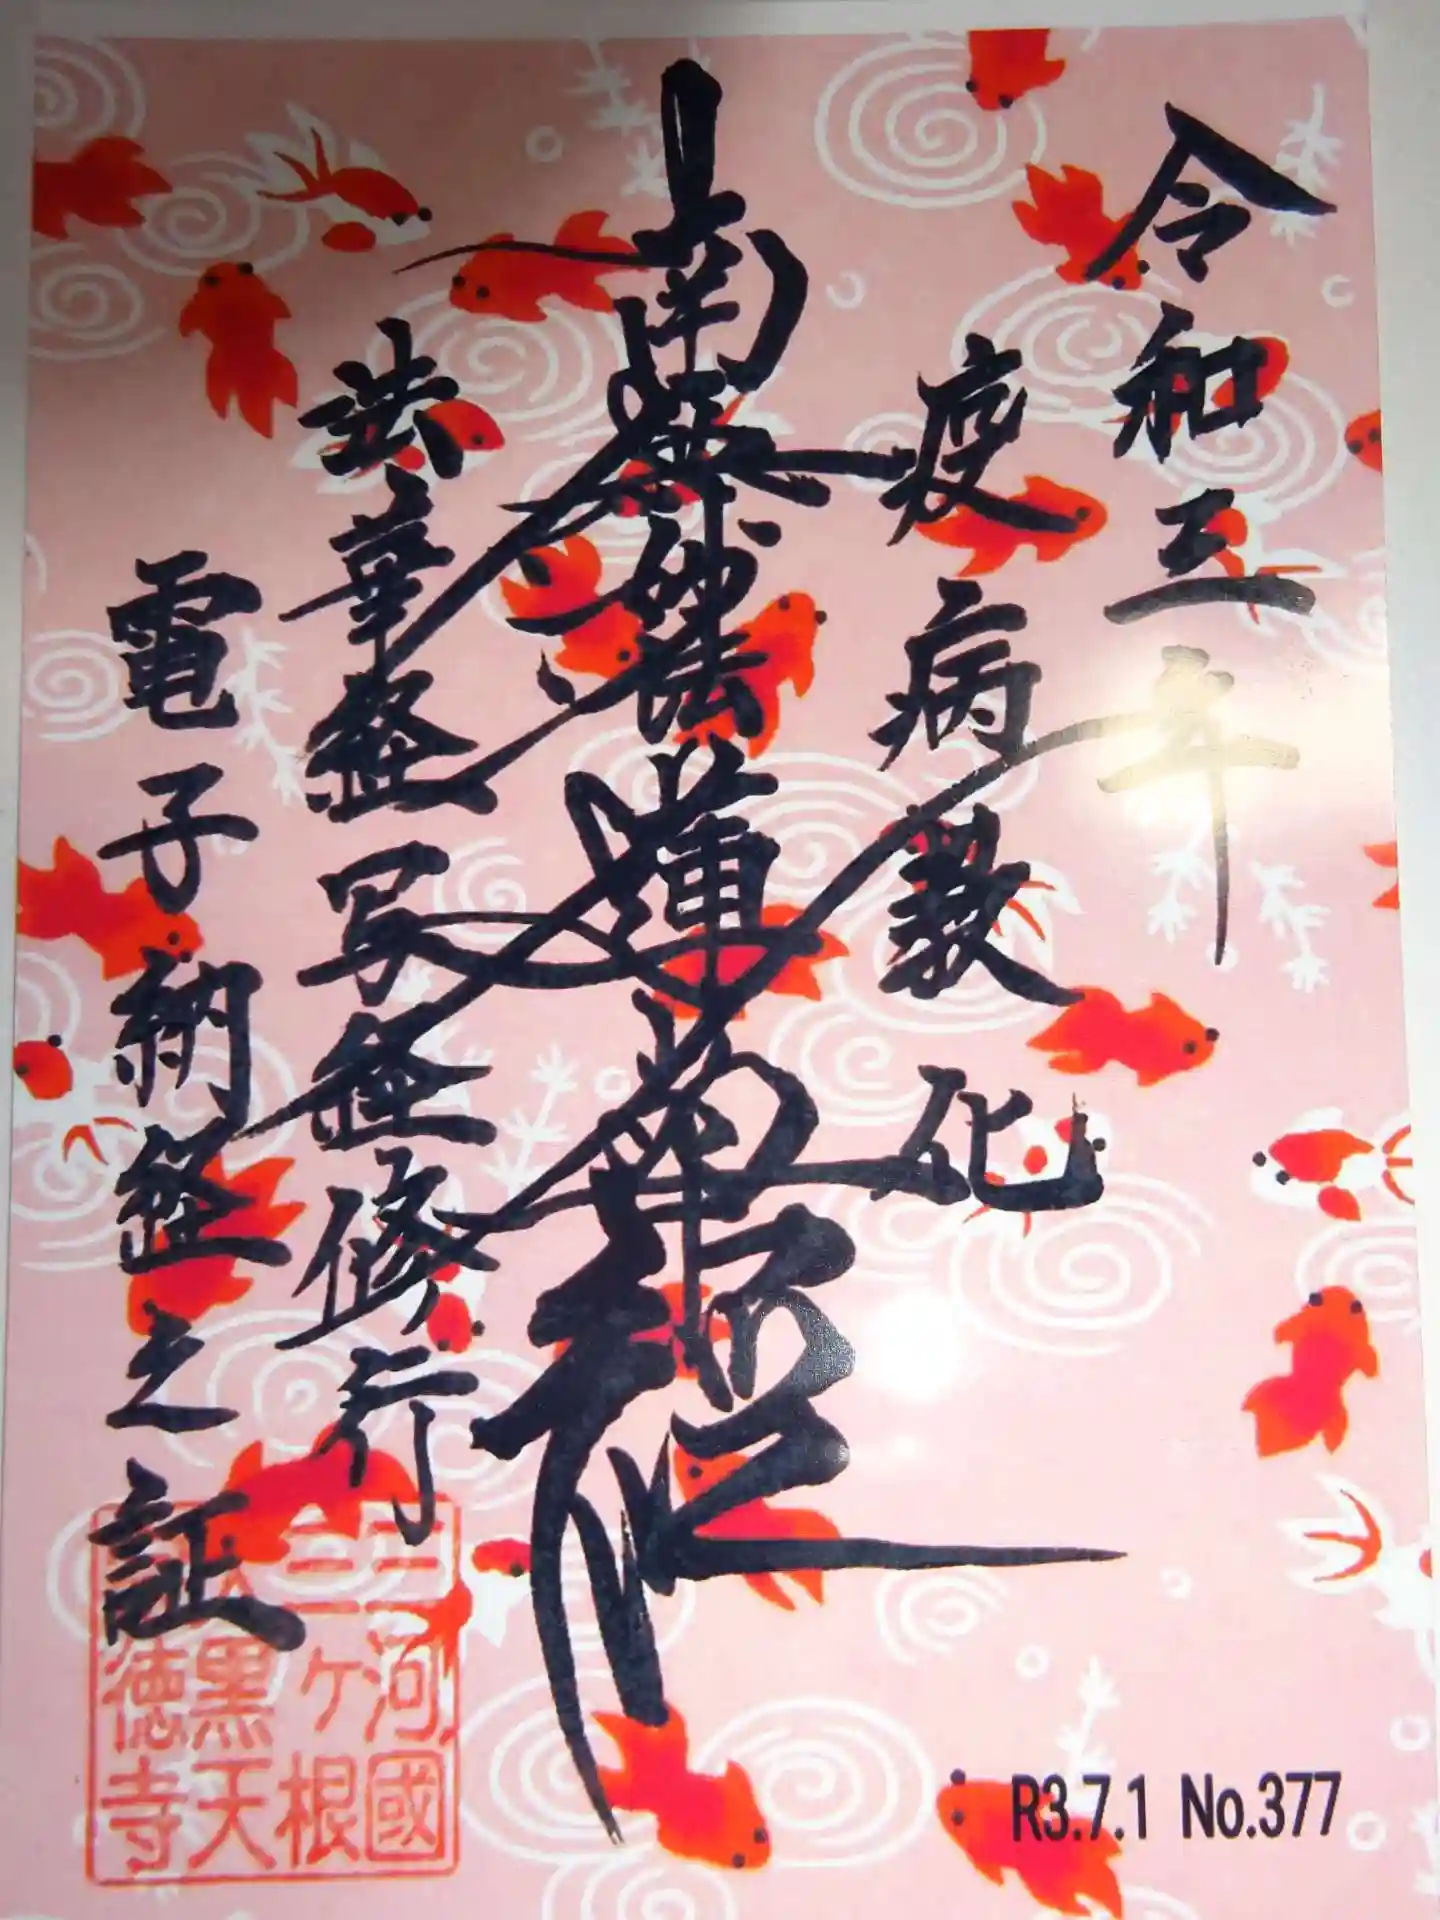 令和三年
疫病義化
南無妙法蓮華経
法華経写経修行
電子納経之証
三河國
三ヶ根
大黒天
徳寺
R3.7.1 No.377